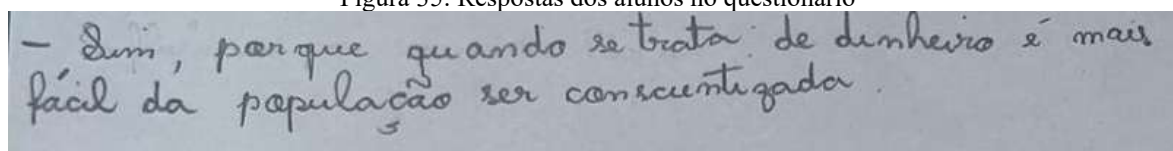 Figura 35: Respostas dos alunos no questionário
- Sim, porque quando se trata de dinheiro é mais
fácil da população ser conscientizada.